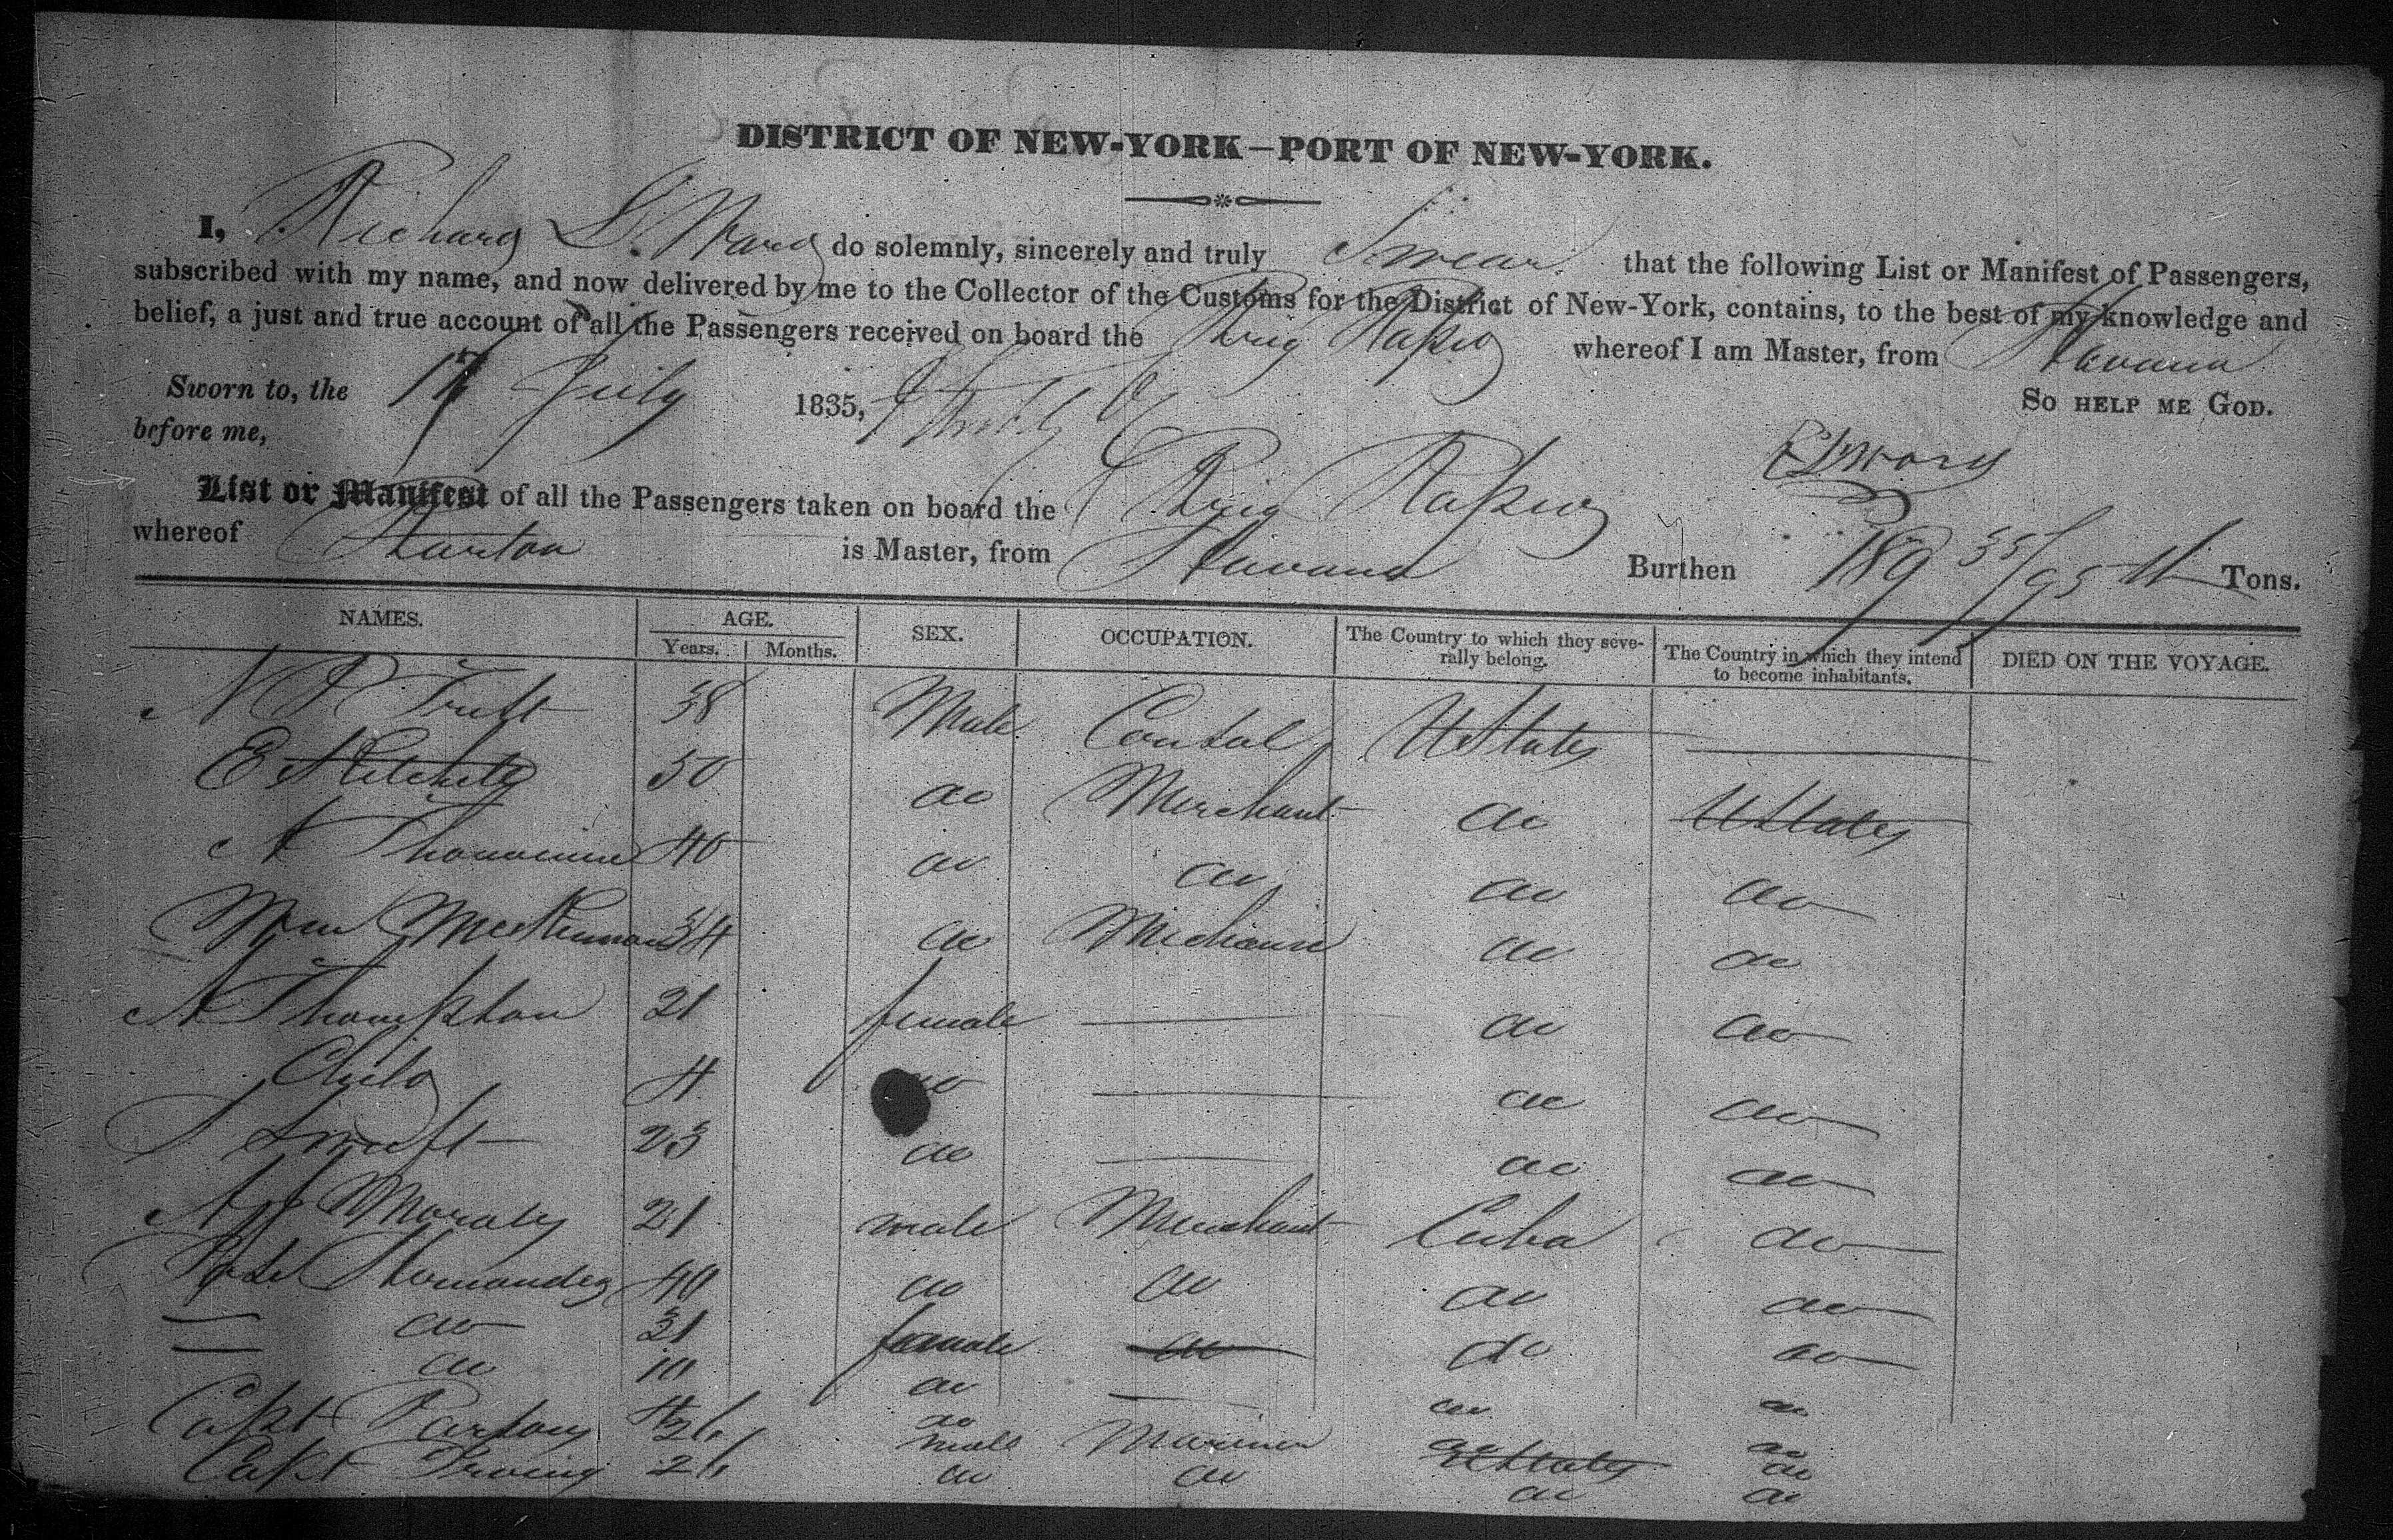 DISTRICT OF NEW-YORK—PORT OF NEW-YORK.
I, Richard L. Ward do solemnly, sincerely and truly Swear that the following List or Manifest of Passengers,
subscribed with my name, and now delivered by me to the Collector of the Customs for the District of New-York, contains, to the best of my knowledge and
belief, a just and true account of all the Passengers received on board the Brig whereof I am Master, from Havana
Sworn to, the 17 July 1835, SO HELP ME GOD.
before me,
List or Manifest of all the Passengers taken on board the Brig
whereof is Master, from Havana Burthen 189 35/95 Tons.
NAMES. AGE. SEX. OCCUPATION. The Country to which they severally belong. The Country in which they intend to become inhabitants. DIED ON THE VOYAGE.
Years. Months.
N P Trist 38 Male Consul U States
E Mitchell 50 do Merchant do U States
A 40 do do do do
Wm 34 do Mechanic do do
A Thompson 21 female do do
Child 4 do do do
Swift 23 do do do
Morales 21 male Merchant Cuba do
José Hernandez 40 do do do do
do 31 female do do do
do 10 do do do
4 do do do
Capt Parsons 36 male Mariner U States do
Capt 26 do do do do